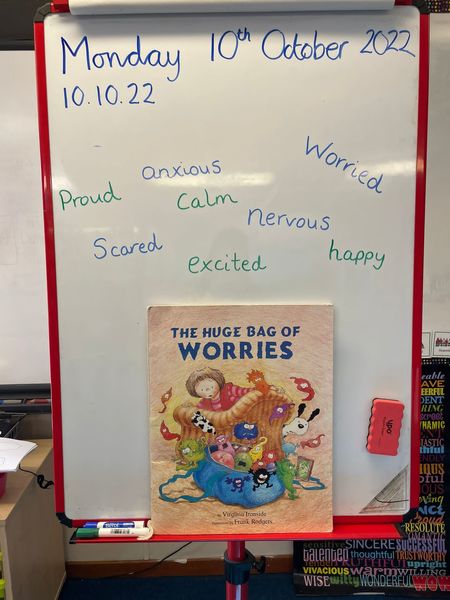 Monday 10th October 2022
10.10.22
Worried
anxious
Proud
Calm
nervous
Scared
excited
happy
THE HUGE BAG OF
WORRIES
by Virginia Ironside
Frank Rodgers
RESOLUTE
SINCERE SUCCESSFUL
talented thoughtful TRUSTWORTHY
TRUTHFUL upright
VIVACIOUS warm WILLING
WISE witty WONDERFUL WOW